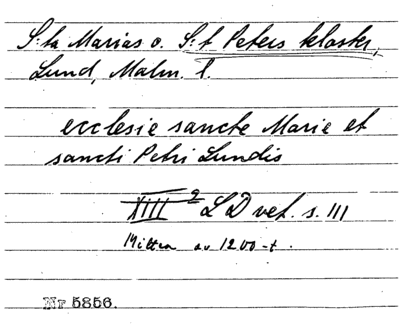 S:ta Marias o. S:t Peters kloster,
Lund, Malm. l.
ecclesie sancte Marie et
sancti Petri Lundis
XIII 2 LD vet. s. III
Mitten av 1200-t.
Nr 5856.